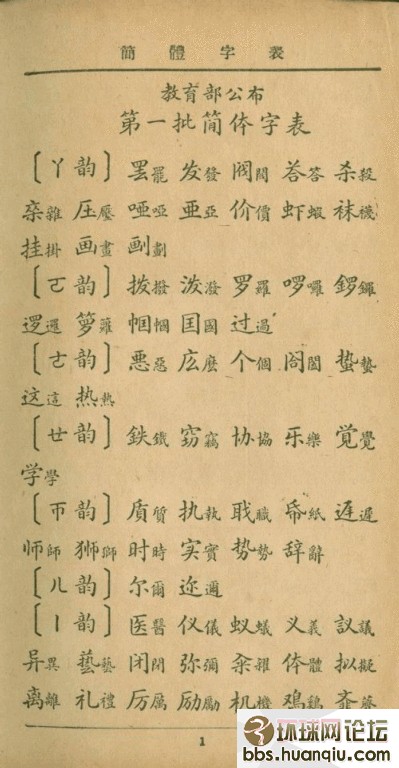 簡體字表
教育部公布
第一批简体字表
〔ㄚ韵〕 罢罷 发發 阀閥 荅答 杀殺
杂雜 压壓 哑啞 亚亞 价價 虾蝦 袜襪
挂掛 画畫 劃
〔ㄛ韵〕 拨撥 泼潑 罗羅 啰囉 锣鑼
逻邏 箩籮 帼幗 国國 过過
〔ㄜ韵〕 恶惡 庅麼 个個 阁閣 蛰蟄
这這 热熱
〔ㄝ韵〕 鉄鐵 窃竊 协協 乐樂 觉覺
学學
〔ㄭ韵〕 质質 执執 职職 帋紙 迟遲
师師 狮獅 时時 实實 势勢 辞辭
〔ㄦ韵〕 尔爾 迩邇
〔ㄧ韵〕 医醫 仪儀 蚁蟻 义義 议議
异異 藝 闭閉 弥彌 籴糴 体體 拟擬
离離 礼禮 厉厲 励勵 机機 鸡鷄
1
环球网论坛
bbs.huanqiu.com